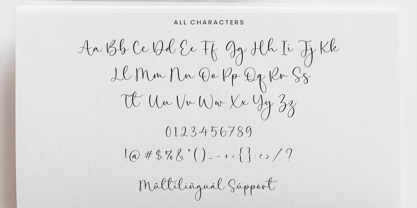 ALL CHARACTERS
Aa Bb Cc Dd Ee Ff Gg Hh Ii Jj Kk
Ll Mm Nn Oo Pp Qq Rr Ss
Tt Uu Vv Ww Xx Yy Zz
0123456789
!@#$%&*()_-+={}:<>/?
Multilingual Support